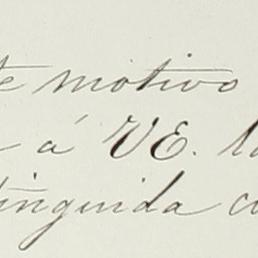 te motivo
á VE. la
tinguida co